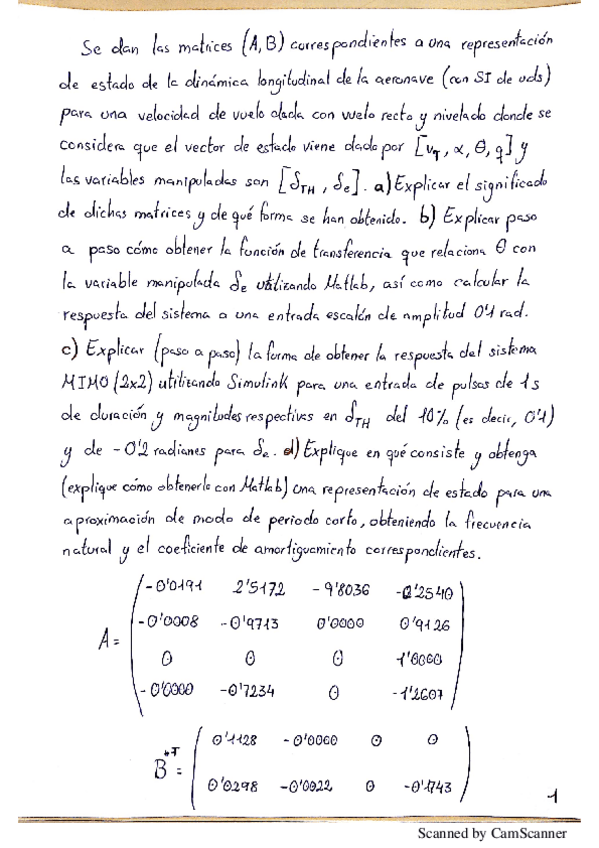 Se dan las matrices (A,B) correspondientes a una representación
de estado de la dinámica longitudinal de la aeronave (con SI de uds)
para una velocidad de vuelo dada con vuelo recto y nivelado donde se
considera que el vector de estado viene dado por [v_T, α, θ, q] y
las variables manipuladas son [δ_TH, δ_e]. a) Explicar el significado
de dichas matrices y de qué forma se han obtenido. b) Explicar paso
a paso cómo obtener la función de transferencia que relaciona θ con
la variable manipulada δ_e utilizando Matlab, así como calcular la
respuesta del sistema a una entrada escalón de amplitud 0'1 rad.
c) Explicar (paso a paso) la forma de obtener la respuesta del sistema
MIMO (2x2) utilizando Simulink para una entrada de pulsos de 1s
de duración y magnitudes respectivas en δ_TH del 10% (es decir, 0'1)
y de -0'2 radianes para δ_e. d) Explique en qué consiste y obtenga
(explique cómo obtenerlo con Matlab) una representación de estado para una
aproximación de modo de periodo corto, obteniendo la frecuencia
natural y el coeficiente de amortiguamiento correspondientes.
-0'0191 2'5172 -9'8036 -0'2540
-0'0008 -0'9713 0'0000 0'9126
A =
0 0 0 1'0000
-0'0000 -0'7234 0 -1'2607
0'1128 -0'0060 0 0
B^T =
0'0298 -0'0022 0 -0'1743
1
Scanned by CamScanner